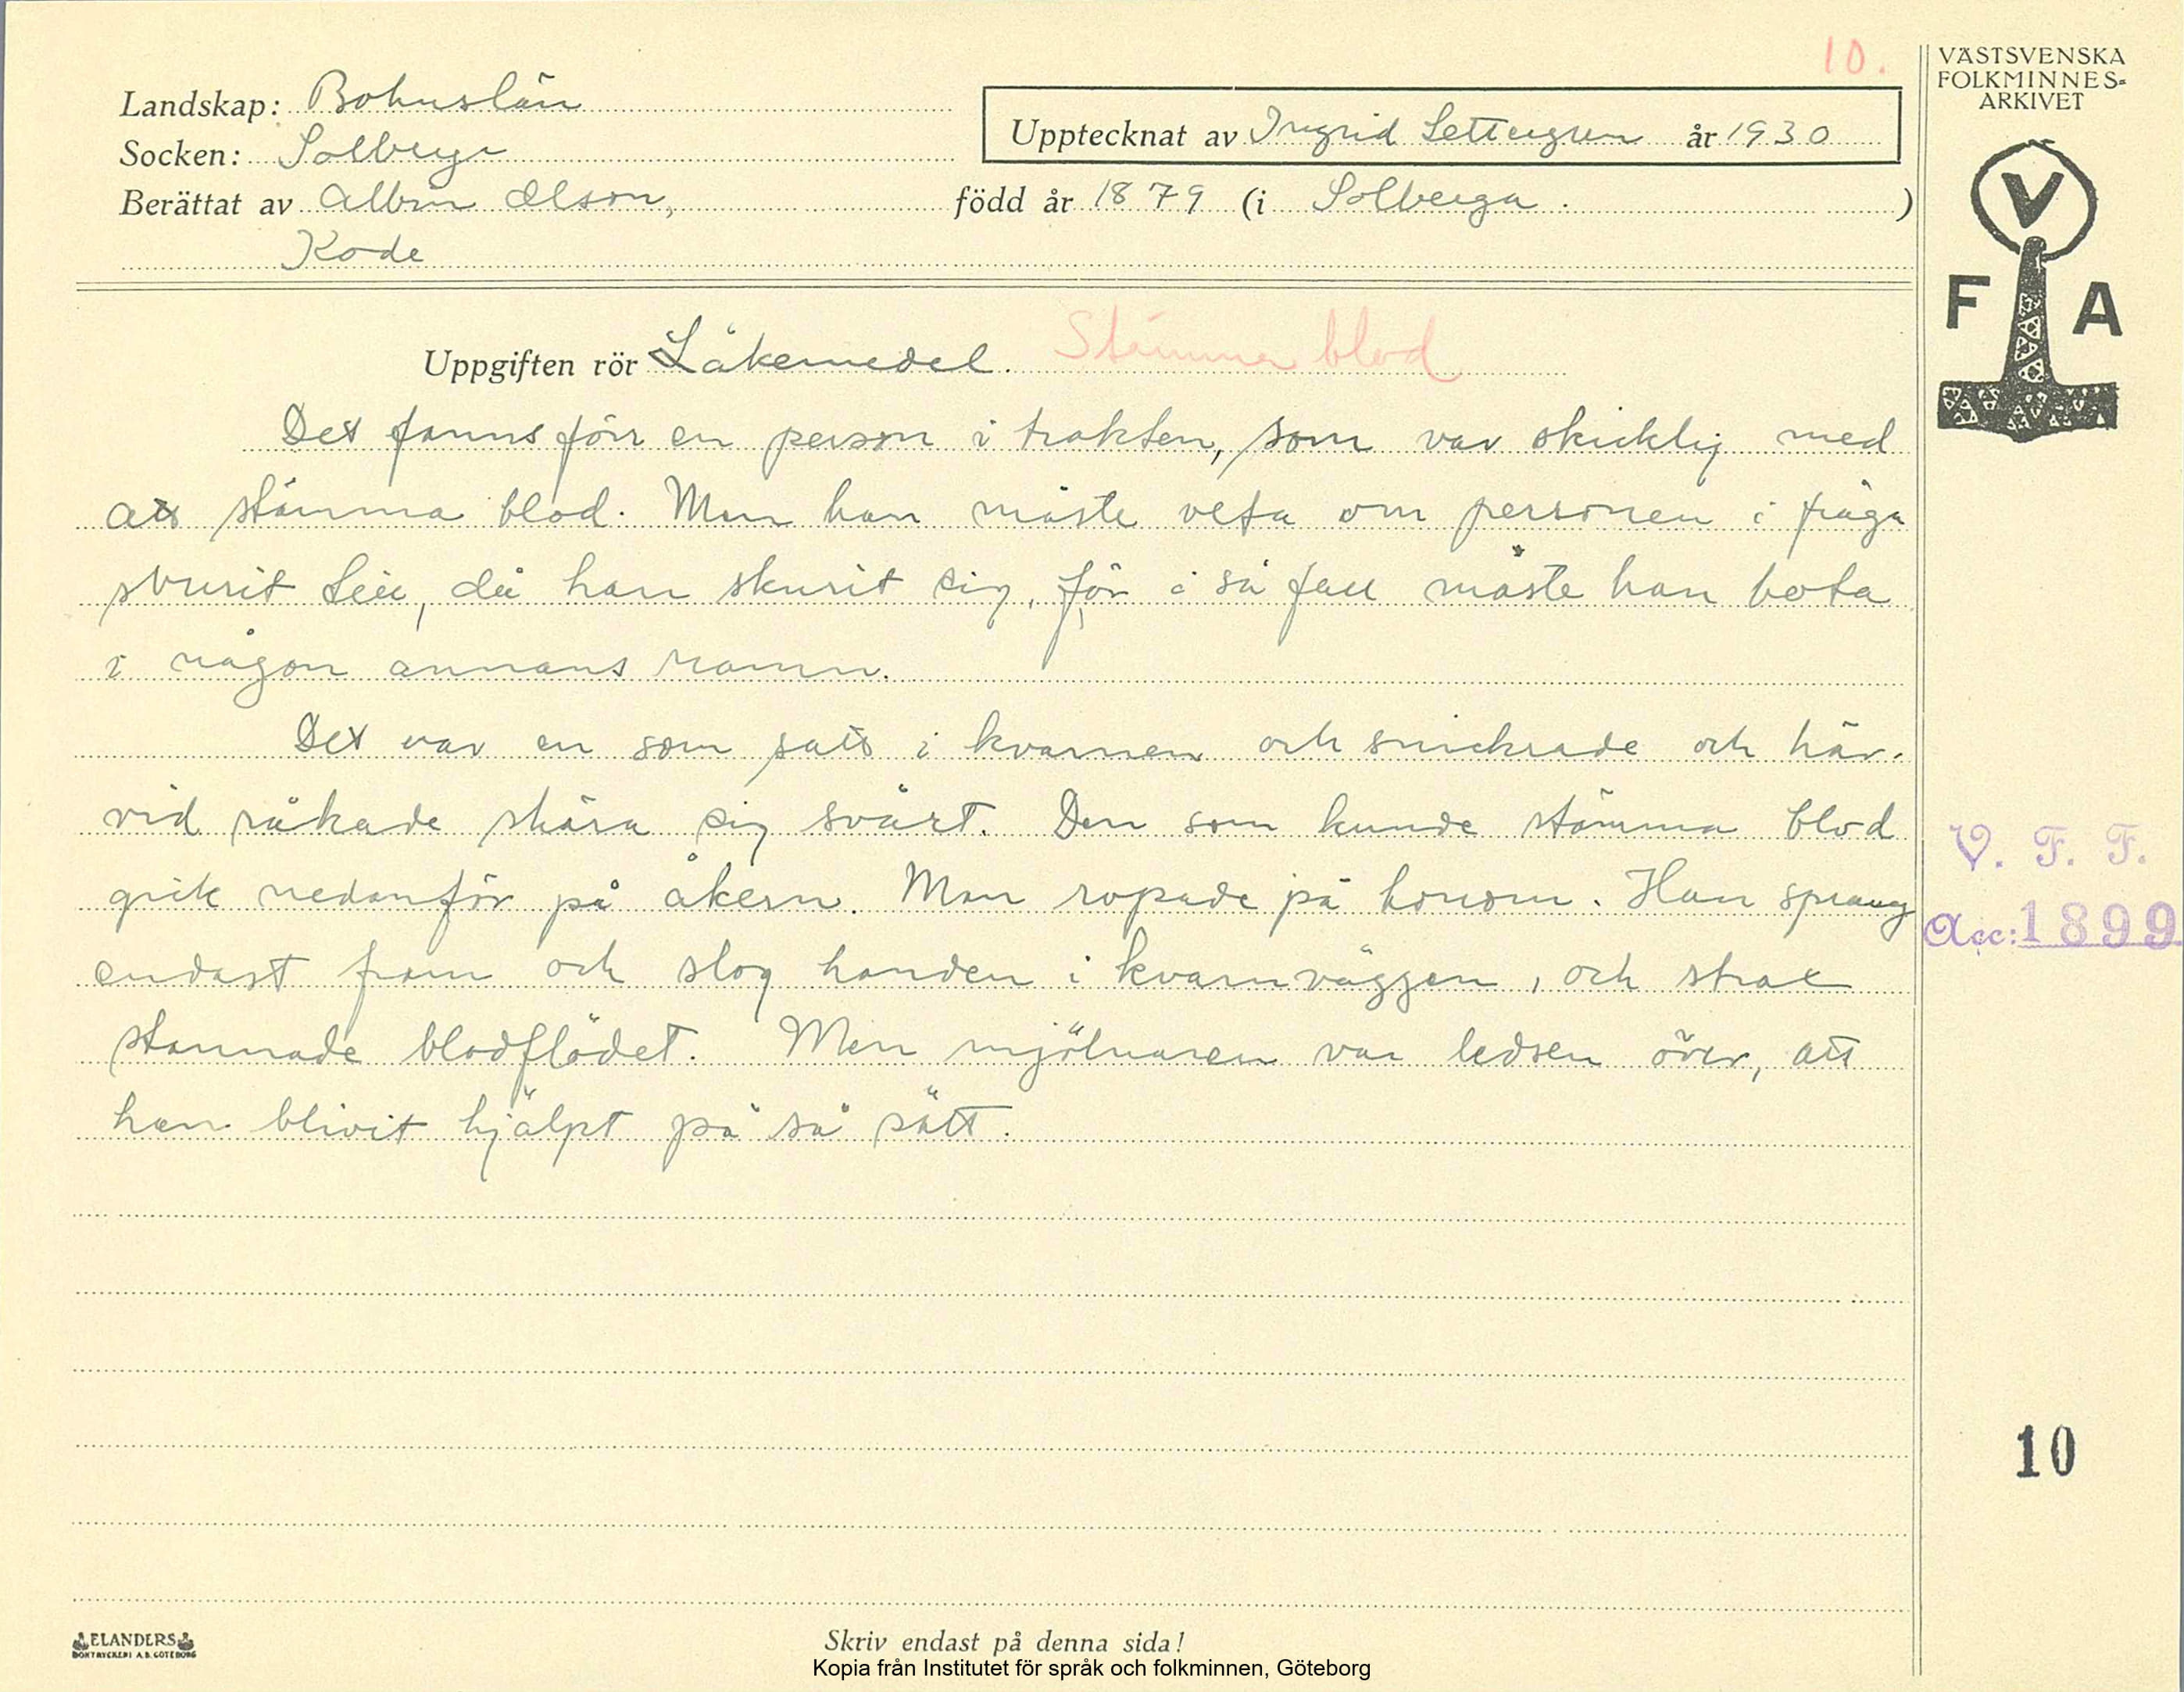 10.
VÄSTSVENSKA
FOLKMINNES-
ARKIVET
Landskap: Bohuslän
Upptecknat av Ingrid Settergren år 1930
Socken: Solberga
Berättat av Albin Olson, född år 1879 (i Solberga.)
Kode
V
F A
Uppgiften rör Läkemedel. Stämma blod
Det fanns förr en person i trakten, som var skicklig med
att stämma blod. Men han måste veta om personen i fråga
svurit, då han skurit sig, för i så fall måste han bota
i någon annans namn.
Det var en som satt i kvarnen och snickrade och här-
vid råkade skära sig svårt. Den som kunde stämma blod
gick nedanför på åkern. Man ropade på honom. Han sprang
endast fram och slog handen i kvarnväggen, och strax
stannade blodflödet. Men mjölnaren var ledsen över, att
han blivit hjälpt på så sätt.
V. F. F.
Acc: 1899
10
ELANDERS
BOKTRYCKERI A.B. GÖTEBORG
Skriv endast på denna sida!
Kopia från Institutet för språk och folkminnen, Göteborg